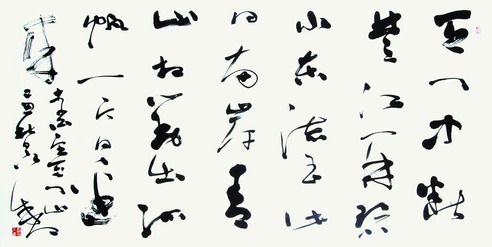 天门中断
楚江开碧
水东流至此
回两岸青
山相对出孤
帆一片日边
来
天门山